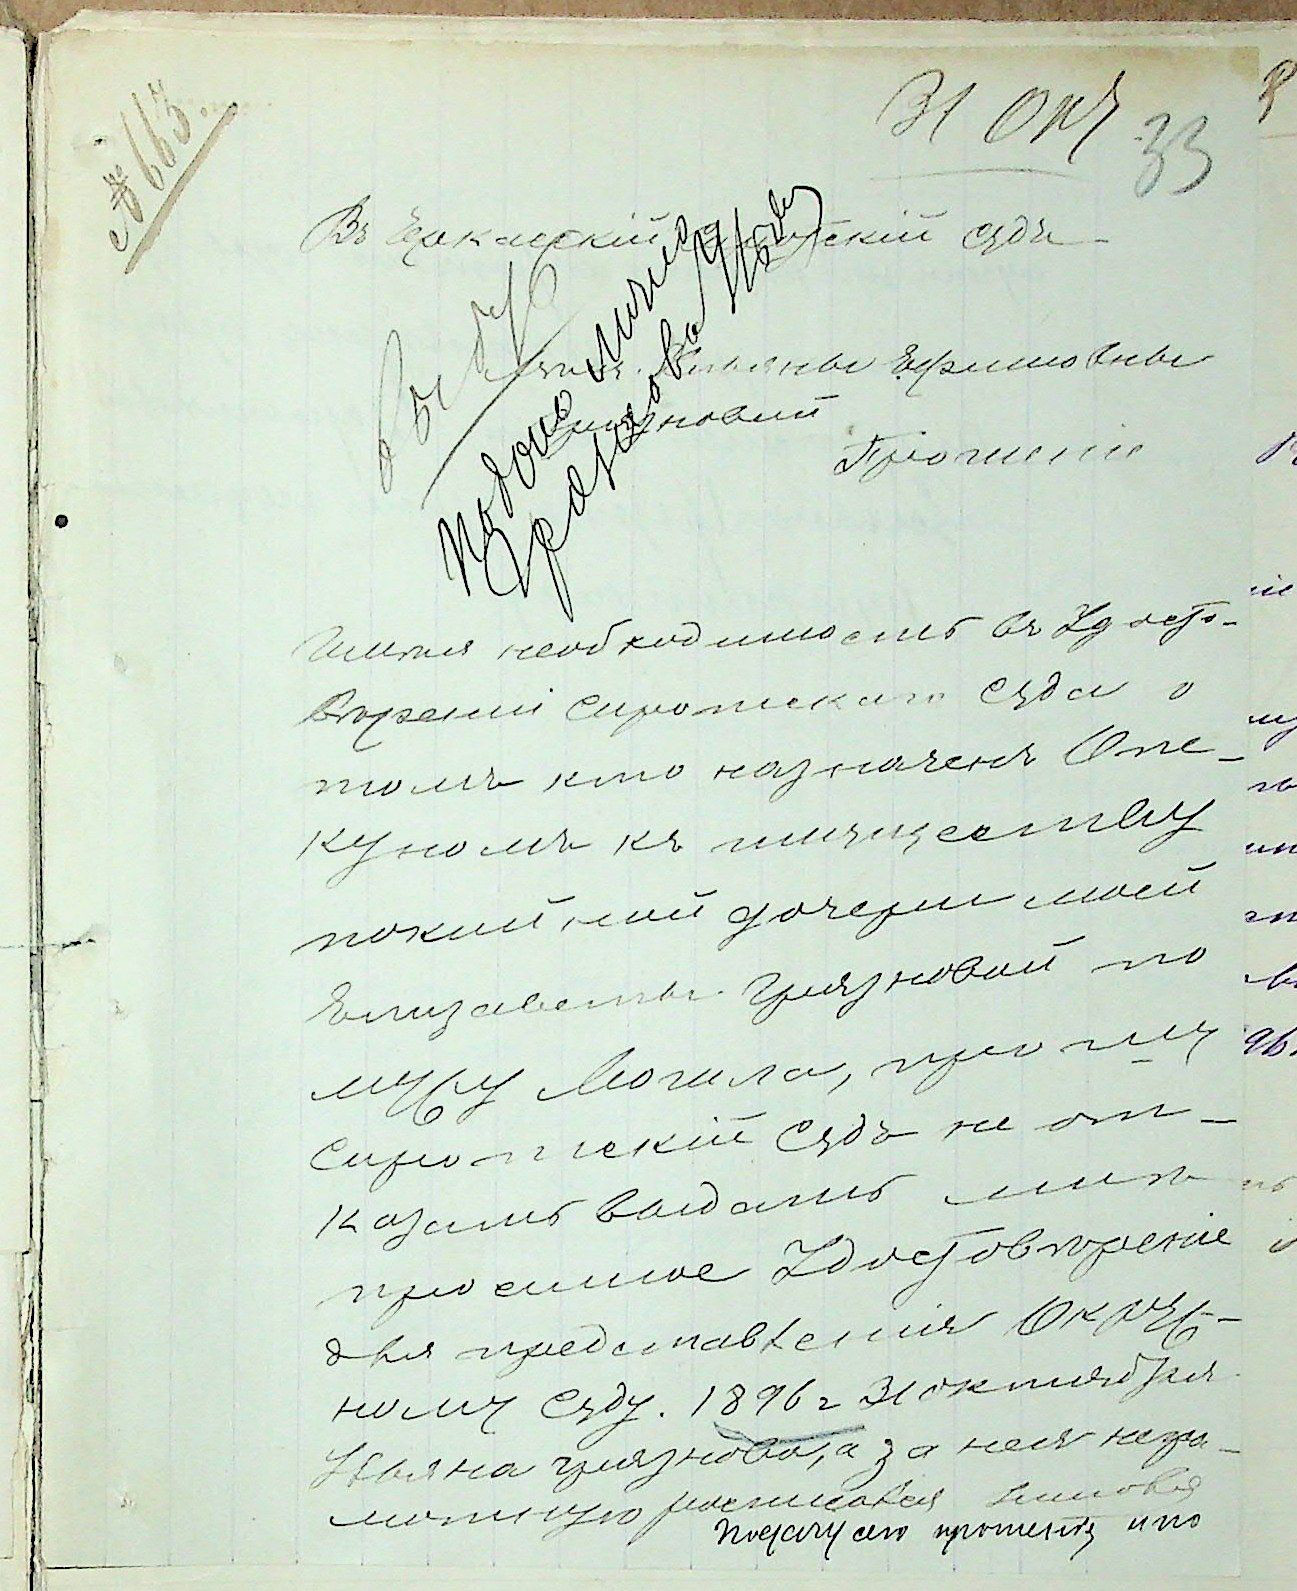 № 663.
31 Окт
33
Въ Черкасскій Сиротскій судъ
Ульяны Ефимовны
Грязновой
Прошеніе
Подано лично
Имѣя необходимость въ Удосто-
вѣреніи Сиротскаго Суда о
томъ кто назначенъ Опе-
куномъ къ имуществу
покойной дочери моей
Елизаветы Грязновой по
мужу Могила, прошу
Сиротскій Судъ не от-
казать выдать мнѣ
просимое Удостовѣреніе
для представленія Окруж-
ному Суду. 1896 г 31 октября
Ульяна Грязнова, а за нея негра-
мотную росписался
Подачу сего прошенія и по